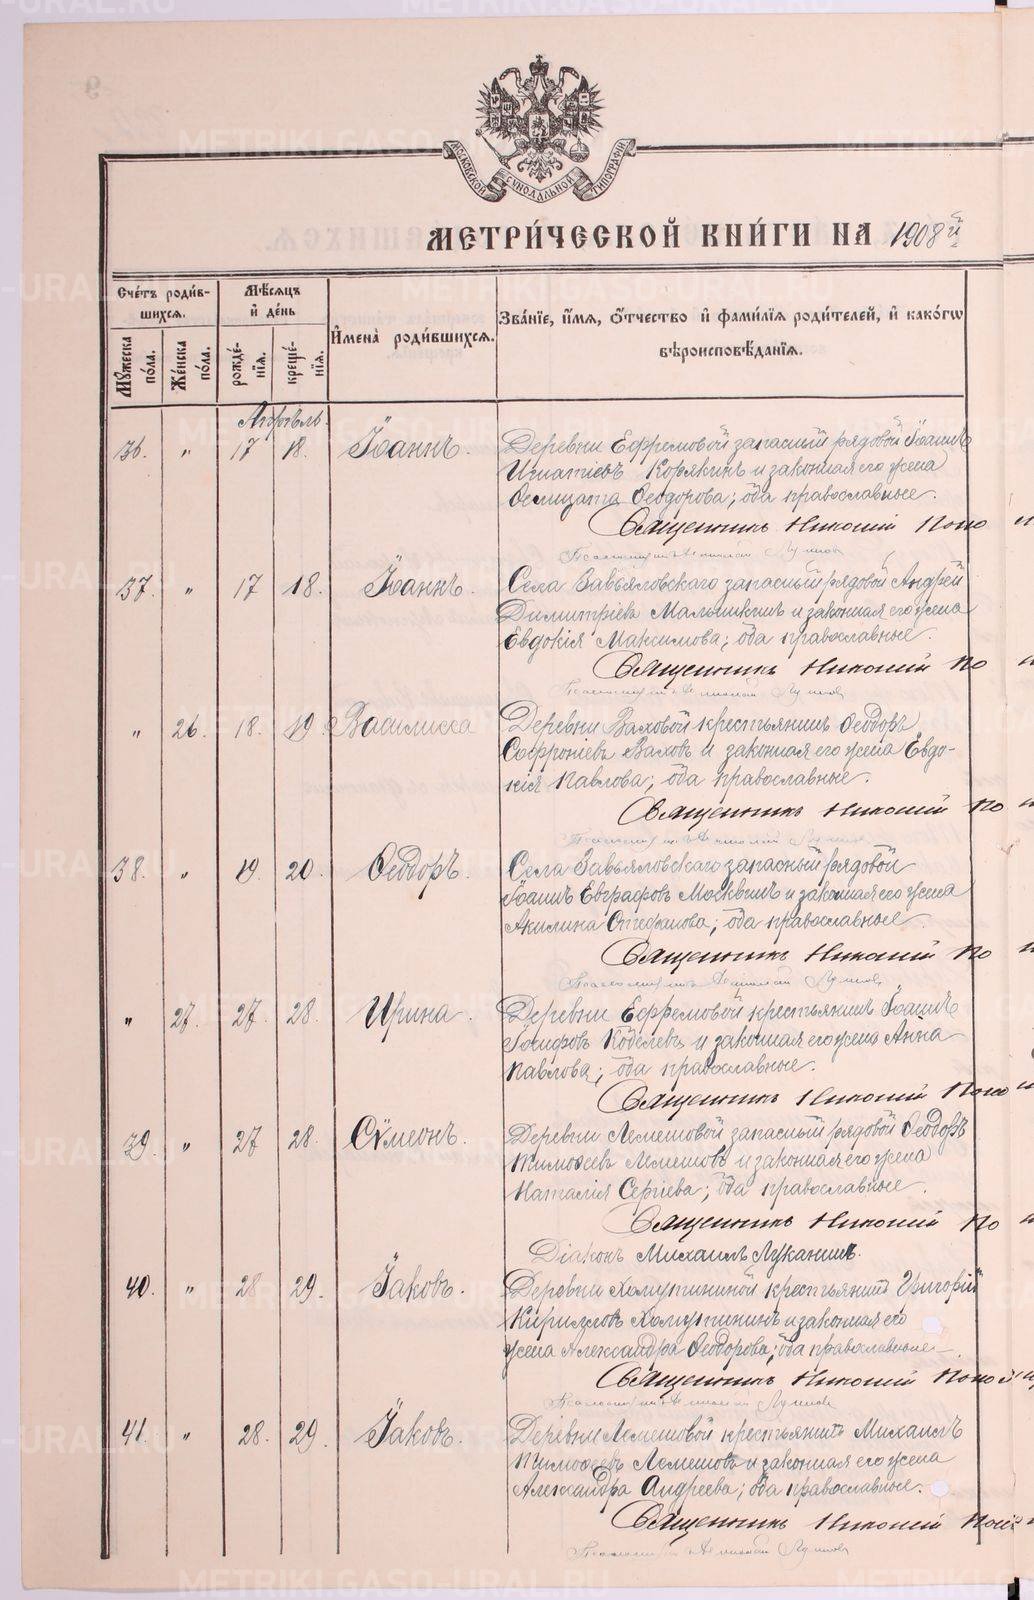 МОСКОВСКОЙ СѴНОДАЛЬНОЙ ТИПОГРАФІИ
МЕТРИ́ЧЕСКОЙ КНИ́ГИ НА 1908й
Сче́тъ роди́в-
шихсѧ.
Мѣ́сѧцъ
и҆ де́нь
И҆мена̀ роди́вшихсѧ.
Зва́нїе, и҆́мѧ, ѻ҆́тчество и҆ фами́лїѧ роди́телей, и҆ како́гѡ
вѣроисповѣ́данїѧ.
Мꙋ́жеска
по́ла.
Же́нска
по́ла.
рожде́-
нїѧ.
креще́-
нїѧ.
Апрѣль.
36. " 17 18. Іоаннъ. Деревни Ефремовой запасный рядовой Іоаннъ
Игнатіевъ Корякинъ и законная его жена
Ѳеодорова; оба православные.
Священникъ Николай Попо
Псаломщикъ
37. " 17 18. Іоаннъ. Села Завьяловскаго запасный рядовой Андрей
Димитріевъ Мальчикинъ и законная его жена
Евдокія Максимова; оба православные.
Священникъ Николай По
Псаломщикъ
" 26. 18. 19. Василисса Деревни Ваховой крестьянинъ Ѳеодоръ
Софроніевъ Ваховъ и законная его жена Евдо-
кія Павлова; оба православные.
Священникъ Николай По
Псаломщикъ
38. " 19. 20. Ѳеодоръ. Села Завьяловскаго запасный рядовой
Іоаннъ Евграфовъ Москвинъ и законная его жена
Акилина Стефанова; оба православные.
Священникъ Николай По
Псаломщикъ
" 27. 27. 28. Ирина. Деревни Ефремовой крестьянинъ Іоаннъ
Іосифовъ Кобелевъ и законная его жена Анна
Павлова; оба православные.
Священникъ Николай Попо
39. " 27 28. Сѵмеонъ. Деревни Лемешовой запасный рядовой Ѳеодоръ
Тимоѳеевъ Лемешовъ и законная его жена
Наталія Сергіева; оба православные.
Священникъ Николай По
Діаконъ Михаилъ Луканинъ.
40. " 28 29. Іаковъ. Деревни Хомутининой крестьянинъ Григорій
Кирилловъ Хомутининъ и законная его
жена Александра Ѳеодорова; оба православные.
Священникъ Николай Попо
Псаломщикъ
41. " 28. 29. Іаковъ. Деревни Лемешовой крестьянинъ Михаилъ
Тимоѳеевъ Лемешовъ и законная его жена
Александра Андреева; оба православные.
Священникъ Николай Поп
Псаломщикъ
METRIKI.GASO-URAL.RU